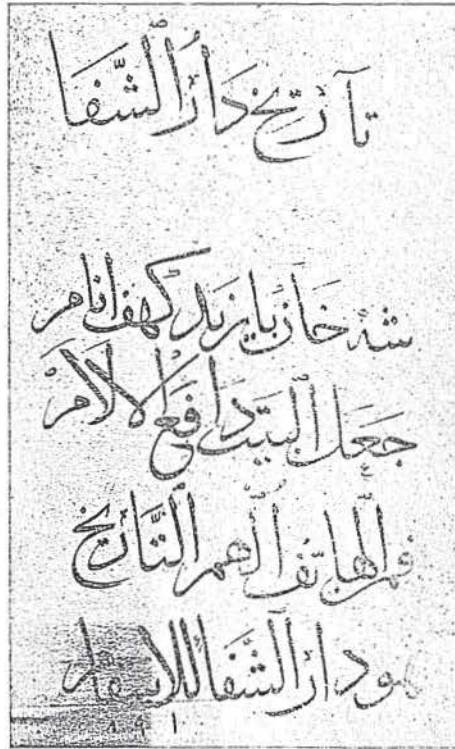 تآريخ دار الشفا
شه خان بايزيد كهف انام
جعل البيت دافع الالام
فم الهاتف الهم التاريخ
هو دار الشفا للاسقام
٨٩١